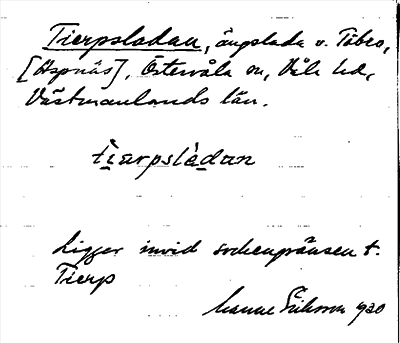 Tierpsladan, ängslada v. Täbro,
[Aspnäs], Östervåla sn, Våla hd,
Västmanlands län.
tịarpslàdan
Ligger invid sockengränsen t.
Tierp
Manne Eriksson 1930